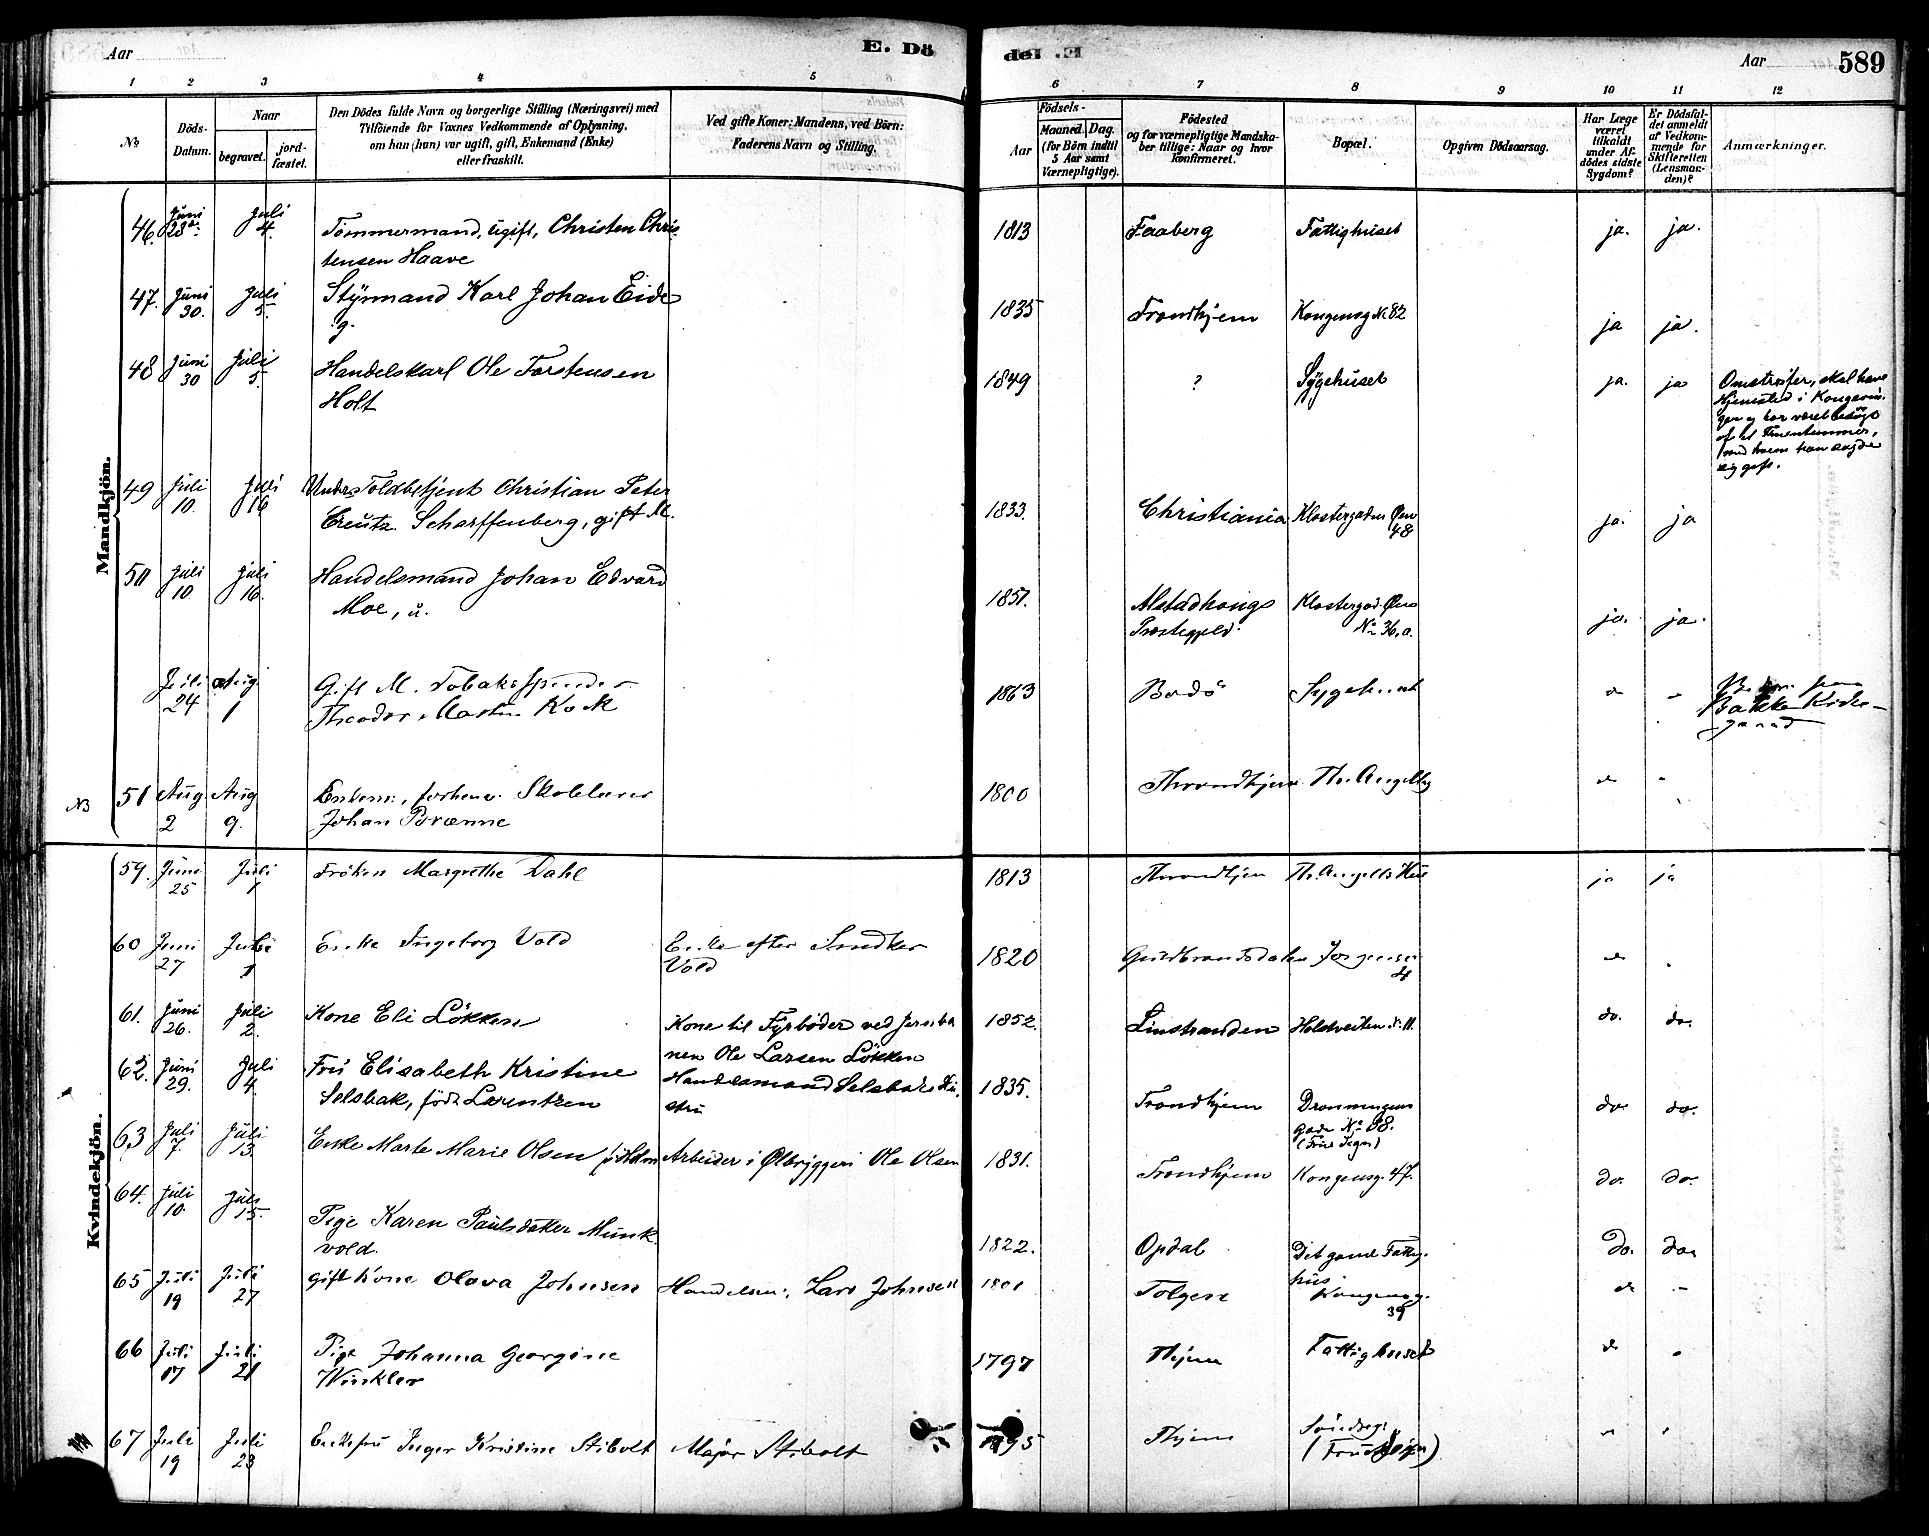 Aar
E. Dö
del. E.
Aar
589
1 2 3 4 5 6 7 8 9 10 11 12
No
Döds-
Datum.
Naar
begravet.
jord-
fæstet.
Den Dödes fulde Navn og borgerlige Stilling (Næringsvei) med
Tilföiende for Voxnes Vedkommende af Oplysning,
om han (hun) var ugift, gift, Enkemand (Enke)
eller fraskilt.
Ved gifte Koner: Mandens, ved Börn:
Faderens Navn og Stilling.
Födsels-
Aar
Maaned. Dag.
(for Börn indtil
5 Aar samt
Værnepligtige).
Födested
og for værnepligtige Mandska-
ber tillige: Naar og hvor
konfirmeret.
Bopæl.
Opgiven Dödsaarsag.
Har Læge
været
tilkaldt
under Af-
dödes sidste
Sygdom?
Er Dödsfal-
det anmeldt
af Vedkom-
mende for
Skifteretten
(Lensman-
den)?
Anmærkninger.
Mandkjön.
46. Juni 28 Juli 4. Tömmermand, ugift, Christen Chris- 1813 Faaberg Fattighuset ja. ja.
tensen Haave
47. Juni 30. Juli 5. Styrmand Karl Johan Eide 1835 Trondhjem Kongensg N. 82 ja ja.
g.
48 Juni 30 Juli 5. Handelskarl Ole Torstensen 1849 ? Sygehuset ja. ja Omstreifer, skal have
Holt
Hjemsted i Kongsvin-
ger og har været besögt
af et Fruentimmer,
med hvem han sagde
sig gift.
49 Juli 10. Juli 16 Under Toldbetjent Christian Peter 1833. Christiania Klostergaden Øen 48 ja. ja
Creutz Scharffenberg, gift M.
50 Juli 10. Juli 16. Handelsmand Johan Edvard 1857. Alstadhougs Klostergad. Øen ja. ja.
Moe, u. Præstegjeld. No 36.a.
Juli 24 Aug 1 Gift M. Tobaksspinder 1863 Bodö Sygehuset
Theodor Martin Kock
Bakke Kirke-
gaard
NB 51 Aug. 2 Aug 9. Enkem., forhenv. Skolelærer 1800 Throndhjem Th. Angellsg
Johan Brænne
Kvindekjön.
59. Juni 25 Juli 1 Fröken Margrethe Dahl 1813 Throndhjem Th. Angells Hus ja ja
60 Juni 27 Juli 1 Enke Ingeborg Vold Enke efter Snedker 1820 Guldbrandsdalen
Vold
61. Juni 26. Juli 2. Kone Eli Løkken Kone til Fyrböder ved Jernba- 1852. Linstranden Holstveiten N. 11. do. do.
nen Ole Larsen Løkken
62. Juni 29. Juli 4. Fru Elisabeth Kristine Handelsmand Selsbaks Hu- 1835. Trondhjem Dronningens do. do.
Selsbak, född Lorentzen stru Gade No 38.
63 Juli 7. Juli 13. Enke Marte Marie Olsen f. Holm Arbeider i Ølbryggeri Ole Olsen 1831. Trondhjem Kongensg. 47. do. do.
64. Juli 10. Juli 15. Pige Karen Paulsdatter Munk- 1822. Opdal Det gamle Fattig- do. do.
vold. hus.
65 Juli 19 Juli 27 gift Kone Olava Johnsen Handelsm. Lars Johnsen 1801 Tolgen Kongensg. 39
66 Juli 17 Juli 21 Pige Johanna Georgine 1797 Thjem Fattighuset
Winkler
67 Juli 19 Juli 23 Enkefru Inger Kristine Stibolt Major Stibolt 1795 Thjem